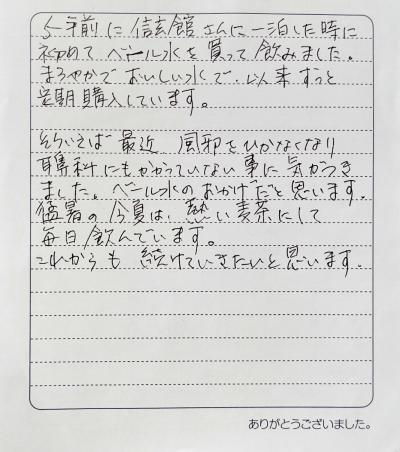 5年前に信玄館さんに一泊した時に
初めてベール水を買って飲みました。
まろやかでおいしい水で、以来ずっと
定期購入しています。
そういえば最近 風邪をひかなくなり
耳鼻科にもかかっていない事に気がつき
ました。ベール水のおかげだと思います。
猛暑の今夏は、熱い麦茶にして
毎日飲んでいます。
これからも続けていきたいと思います。
ありがとうございました。